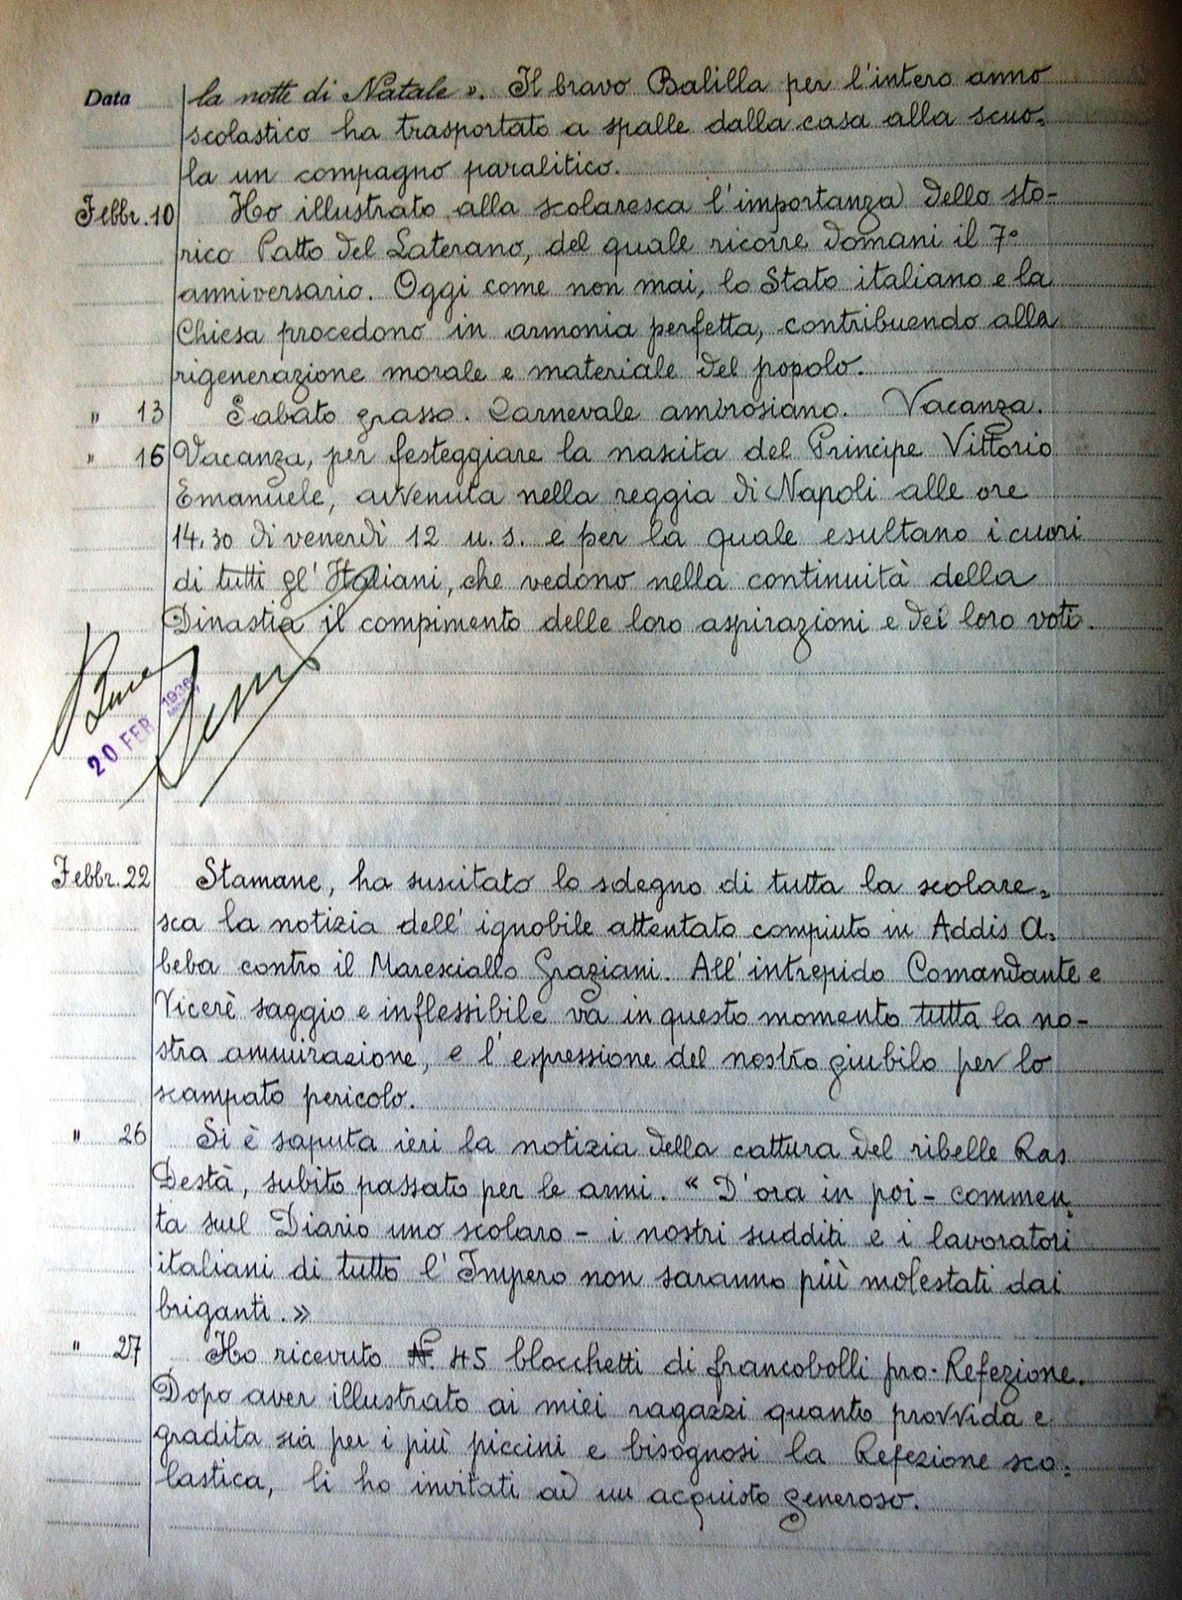 Data
la notte di Natale ». Il bravo Balilla per l'intero anno
scolastico ha trasportato a spalle dalla casa alla scuo=
la un compagno paralitico.
Febbr. 10 Ho illustrato alla scolaresca l'importanza dello sto-
rico Patto del Laterano, del quale ricorre domani il 7°
anniversario. Oggi come non mai, lo Stato italiano e la
Chiesa procedono in armonia perfetta, contribuendo alla
rigenerazione morale e materiale del popolo.
" 13 Sabato grasso. Carnevale ambrosiano. Vacanza.
" 16 Vacanza, per festeggiare la nascita del Principe Vittorio
Emanuele, avvenuta nella reggia di Napoli alle ore
14.30 di venerdì 12 u. s. e per la quale esultano i cuori
di tutti gl'Italiani, che vedono nella continuità della
Dinastia il compimento delle loro aspirazioni e dei loro voti.
20 FEB
Febbr. 22 Stamane, ha suscitato lo sdegno di tutta la scolare=
sca la notizia dell'ignobile attentato compiuto in Addis A=
beba contro il Maresciallo Graziani. All'intrepido Comandante e
Vicerè saggio e inflessibile va in questo momento tutta la no-
stra ammirazione, e l'espressione del nostro giubilo per lo
scampato pericolo.
" 26 Si è saputa ieri la notizia della cattura del ribelle Ras
Destà, subito passato per le armi. « D'ora in poi - commen=
ta sul Diario uno scolaro - i nostri sudditi e i lavoratori
italiani di tutto l'Impero non saranno più molestati dai
briganti. »
" 27 Ho ricevuto N° 45 blocchetti di francobolli pro-Refezione.
Dopo aver illustrato ai miei ragazzi quanto provvida e
gradita sia per i più piccini e bisognosi la Refezione sco=
lastica, li ho invitati ad un acquisto generoso.